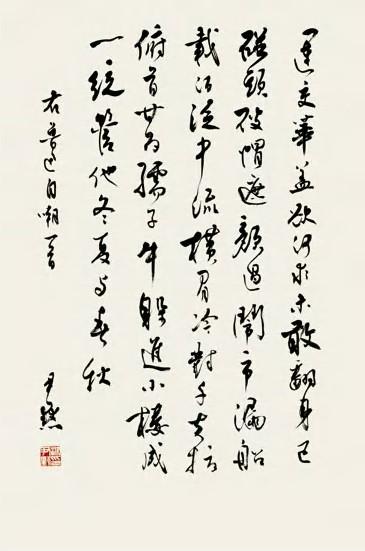 運交華蓋欲何求未敢翻身已
碰頭破帽遮顏過鬧市漏船
載酒泛中流橫眉冷對千夫指
俯首甘為孺子牛躲進小樓成
一統管他冬夏與春秋
右魯迅自嘲一首
尹默